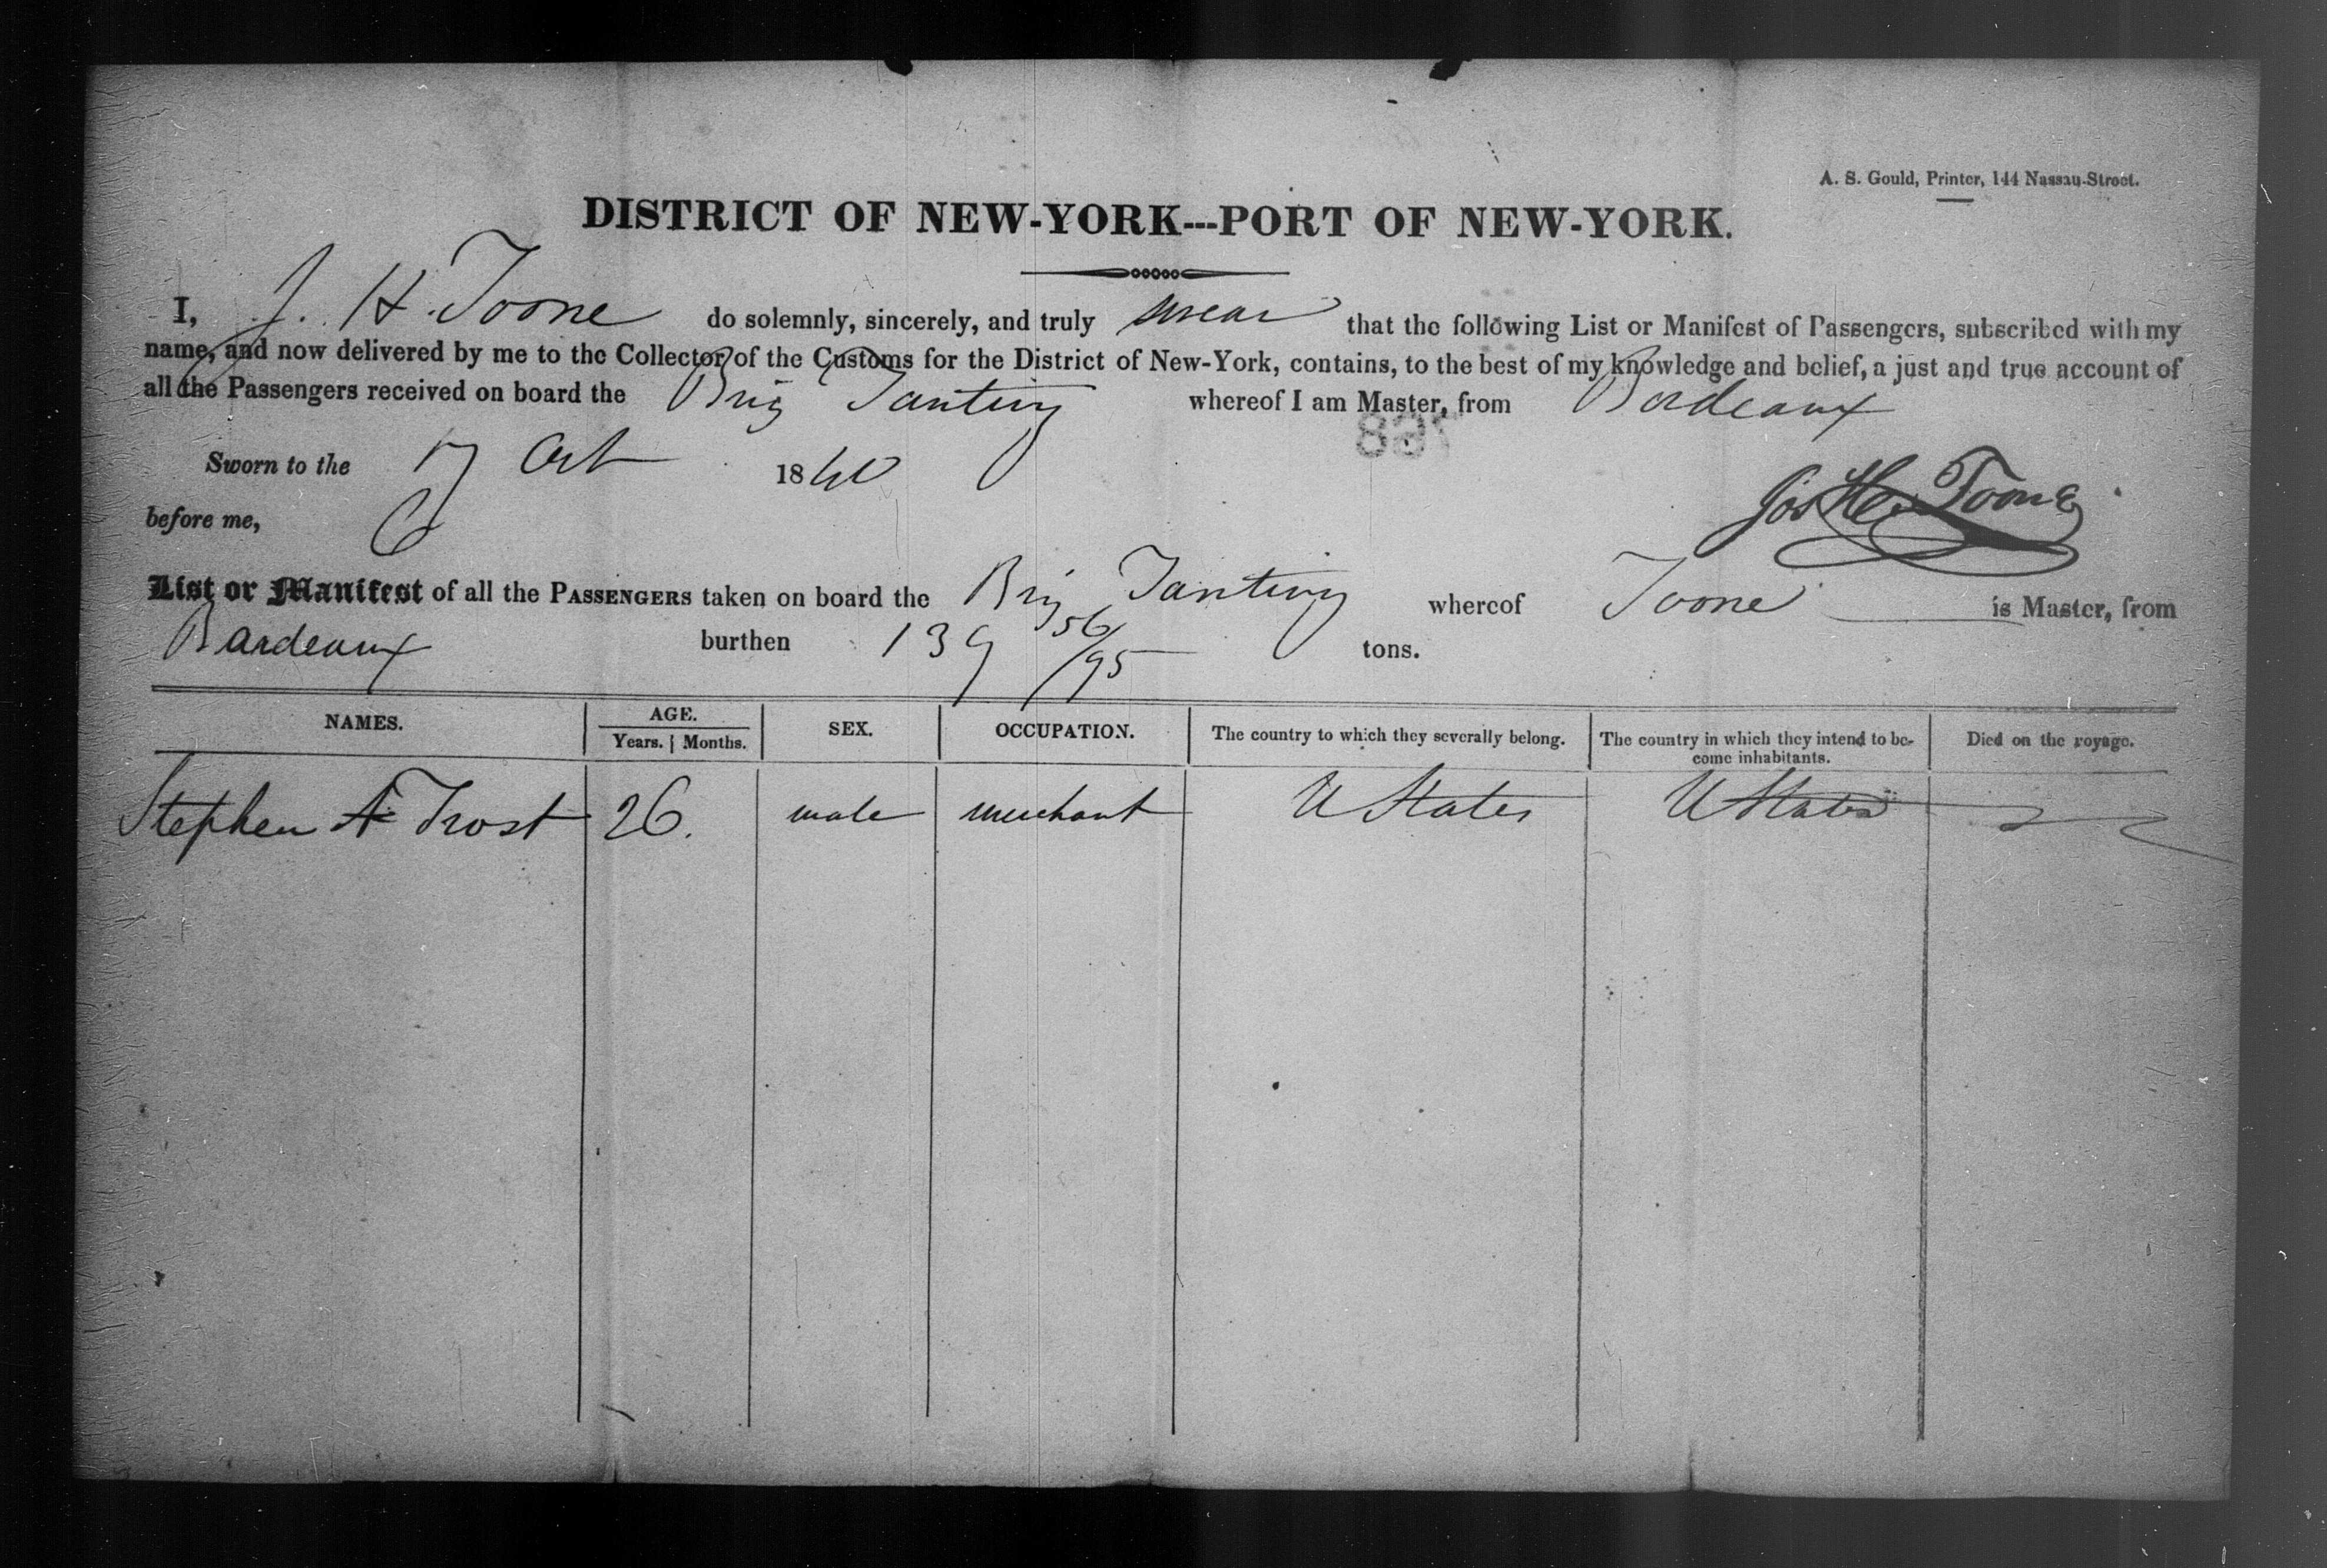 A. S. Gould, Printer, 144 Nassau-Street.
DISTRICT OF NEW-YORK---PORT OF NEW-YORK.
I, J. H. Toone do solemnly, sincerely, and truly swear that the following List or Manifest of Passengers, subscribed with my
name, and now delivered by me to the Collector of the Customs for the District of New-York, contains, to the best of my knowledge and belief, a just and true account of
all the Passengers received on board the Brig Tantivy whereof I am Master, from Bordeaux
Sworn to the 17 Oct 1840
Jos H. Toone
before me,
List or Manifest of all the PASSENGERS taken on board the Brig Tantivy whereof Toone is Master, from
Bardeaux burthen 139 56/95 tons.
NAMES. AGE. SEX. OCCUPATION. The country to which they severally belong. The country in which they intend to be-come inhabitants. Died on the voyage.
Years. Months.
Stephen A Trost 26. male merchant U States U States